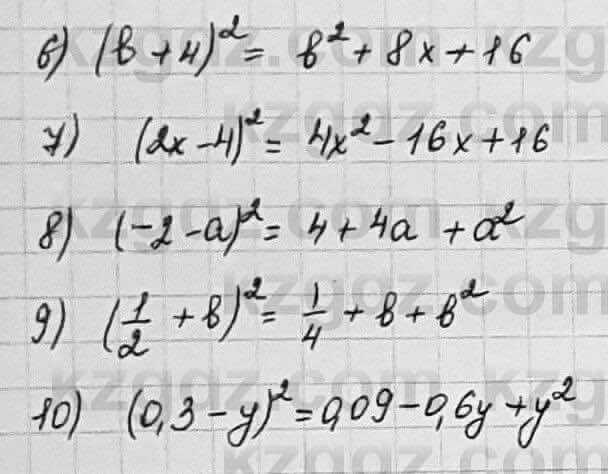 6) (b + 4)² = b² + 8x + 16
7) (2x - 4)² = 4x² - 16x + 16
8) (-2 - a)² = 4 + 4a + a²
9) (1/2 + b)² = 1/4 + b + b²
10) (0,3 - y)² = 0,09 - 0,6y + y²